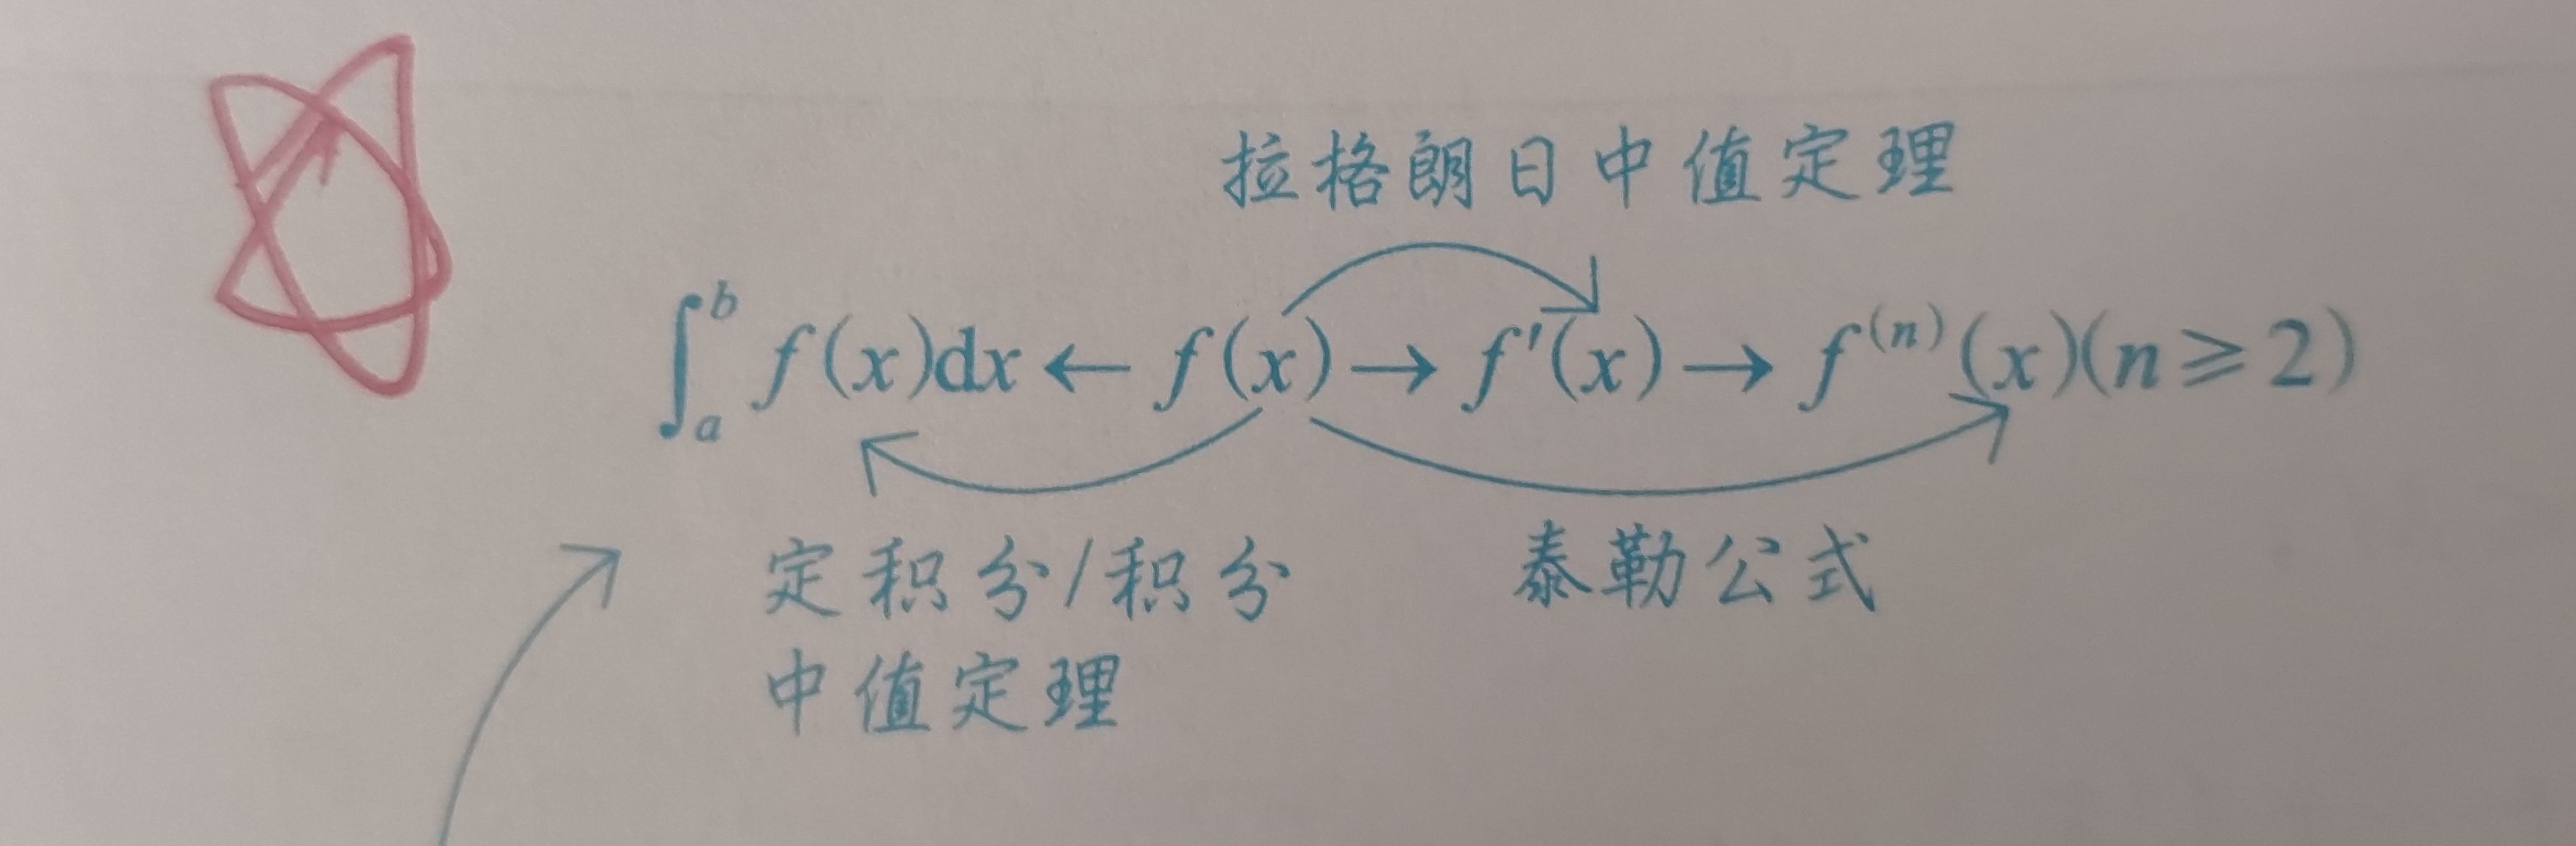 拉格朗日中值定理
∫_a^b f(x)dx ← f(x) → f′(x) → f^(n)(x)(n≥2)
定积分/积分 泰勒公式
中值定理